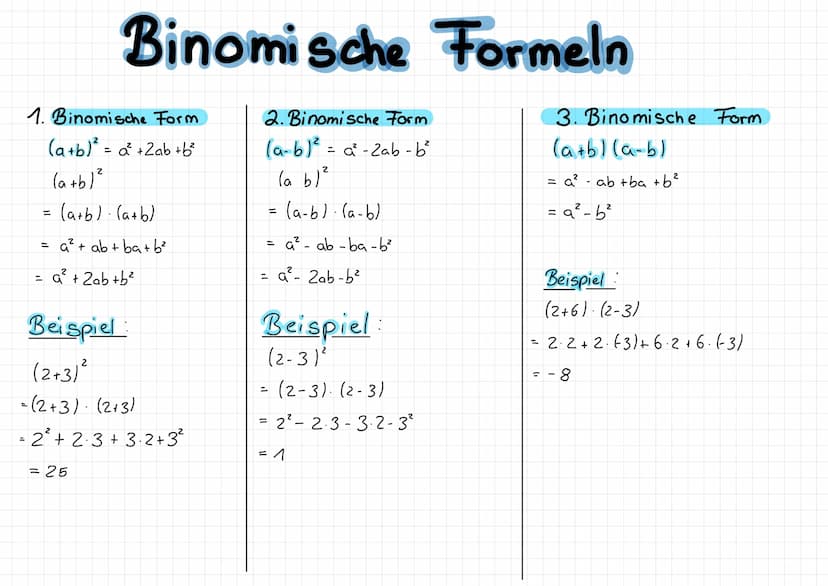 Binomische Formeln
1. Binomische Form
(a+b)² = a² + 2ab + b²
(a+b)²
= (a+b) · (a+b)
= a² + ab + ba + b²
= a² + 2ab + b²
Beispiel:
(2+3)²
= (2+3) · (2+3)
= 2² + 2·3 + 3·2 + 3²
= 25
2. Binomische Form
(a-b)² = a² - 2ab - b²
(a b)²
= (a-b) · (a-b)
= a² - ab - ba - b²
= a² - 2ab - b²
Beispiel:
(2-3)²
= (2-3) · (2-3)
= 2² - 2·3 - 3·2 - 3²
= 1
3. Binomische Form
(a+b) (a-b)
= a² - ab + ba + b²
= a² - b²
Beispiel:
(2+6) · (2-3)
= 2·2 + 2·(-3) + 6·2 + 6·(-3)
= -8